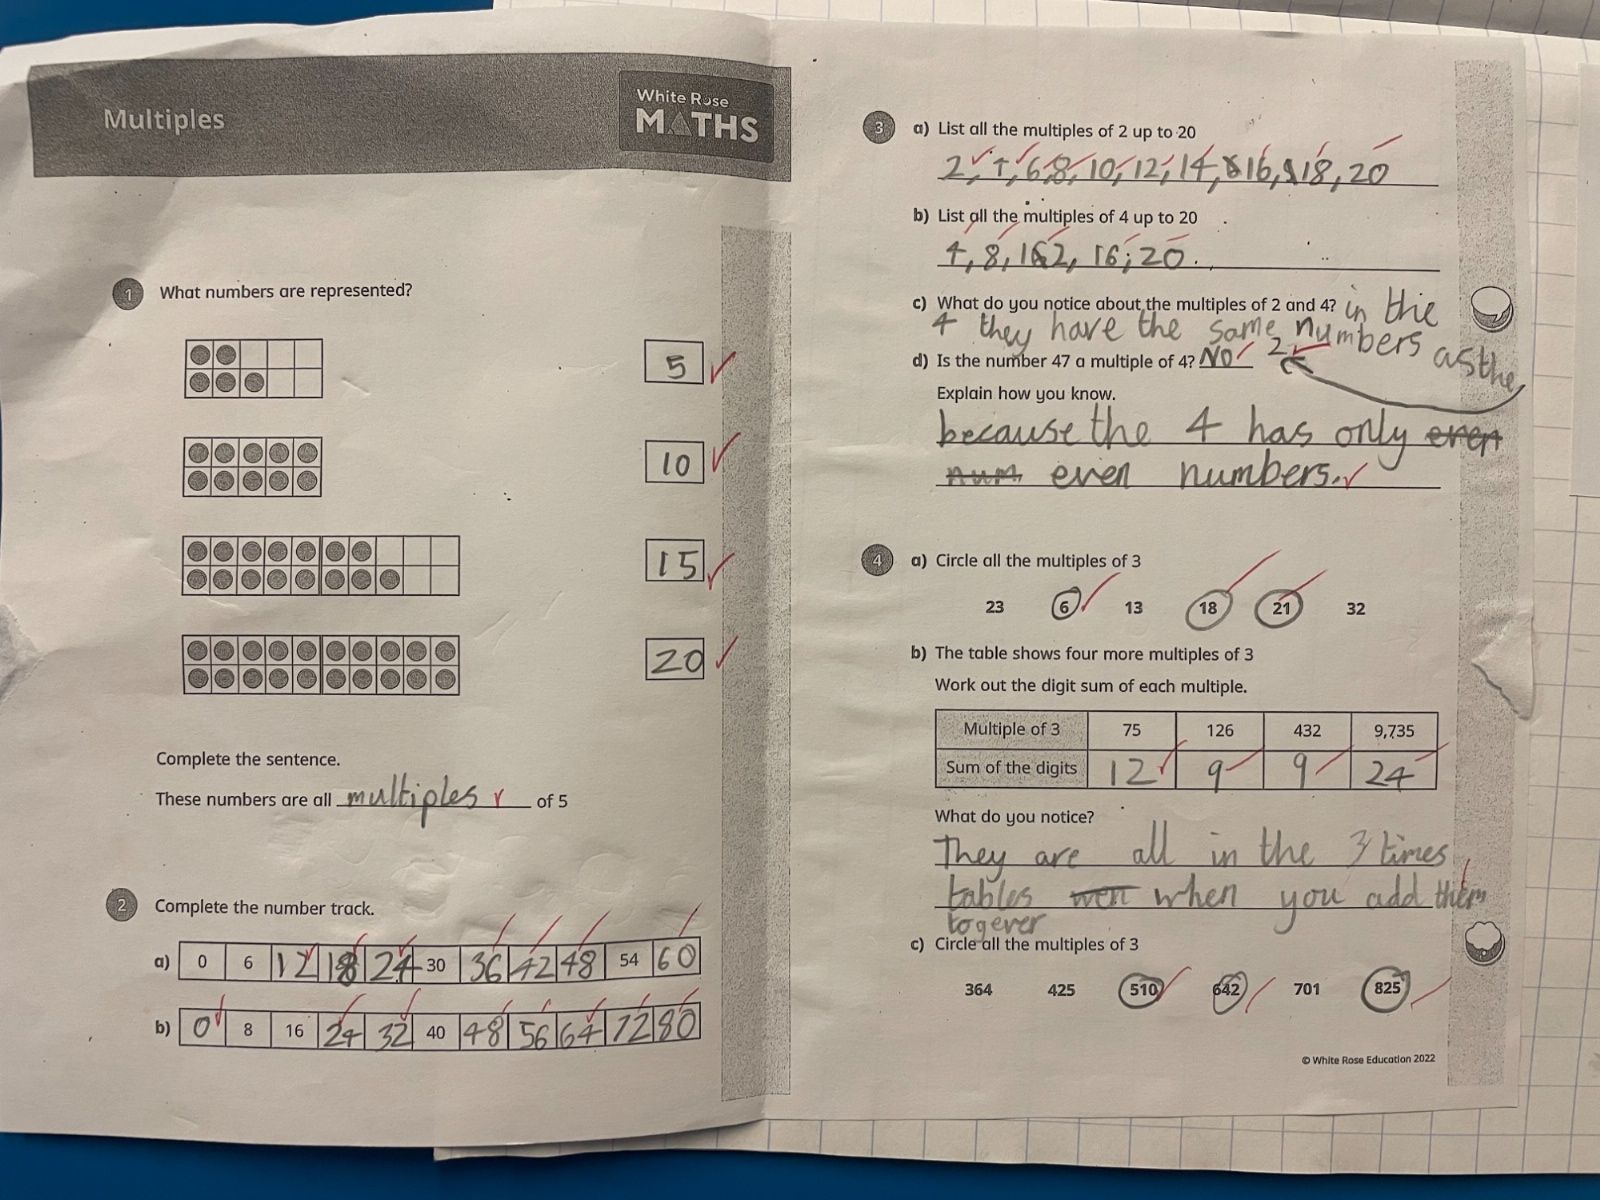 Multiples
White Rose
MATHS
1 What numbers are represented?
5
10
15
20
Complete the sentence.
These numbers are all multiples of 5
2 Complete the number track.
a) 0 6 12 18 24 30 36 42 48 54 60
b) 0 8 16 24 32 40 48 56 64 72 80
3 a) List all the multiples of 2 up to 20
2, 4, 6, 8, 10, 12, 14, 16, 18, 20
b) List all the multiples of 4 up to 20
4, 8, 12, 16, 20.
c) What do you notice about the multiples of 2 and 4? in the
4 they have the same numbers as the
2
d) Is the number 47 a multiple of 4? NO
Explain how you know.
because the 4 has only even
num even numbers.
4 a) Circle all the multiples of 3
23 6 13 18 21 32
b) The table shows four more multiples of 3
Work out the digit sum of each multiple.
Multiple of 3 75 126 432 9,735
Sum of the digits 12 9 9 24
What do you notice?
They are all in the 3 times
tables when you add them
togever
c) Circle all the multiples of 3
364 425 510 642 701 825
© White Rose Education 2022